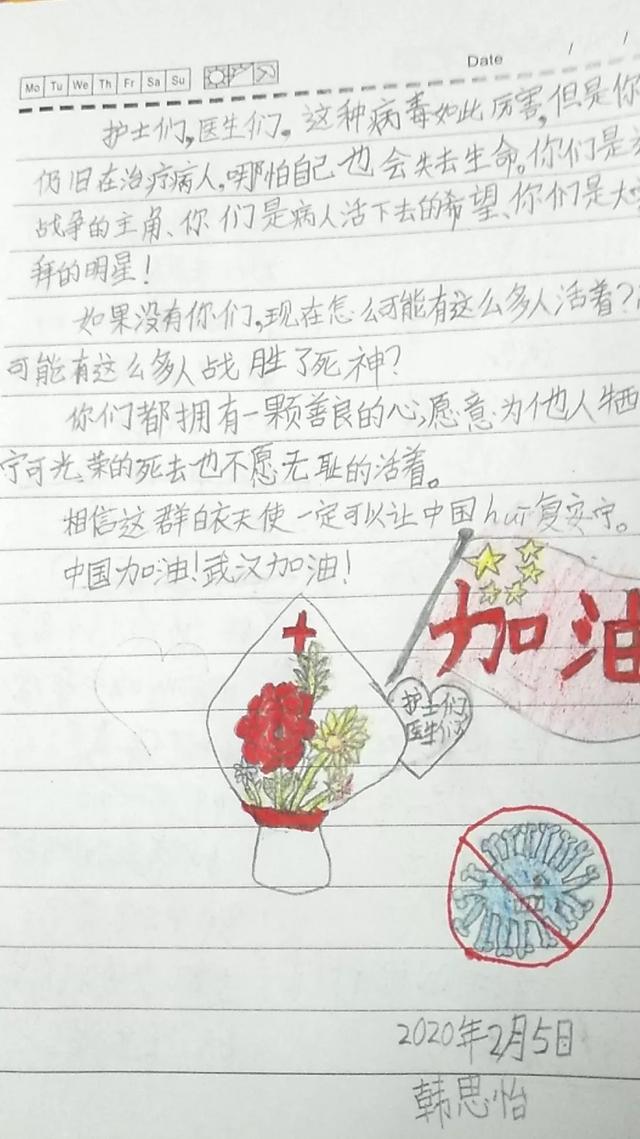 Date / /
Mo Tu We Th Fr Sa Su
护士们,医生们。这种病毒如此厉害,但是你
仍旧在治疗病人,哪怕自己也会失去生命。你们是
战争的主角、你们是病人活下去的希望、你们是大
拜的明星!
如果没有你们,现在怎么可能有这么多人活着?
可能有这么多人战胜了死神?
你们都拥有一颗善良的心,愿意为他人牺
宁可光荣的死去也不愿无耻的活着。
相信这群白衣天使一定可以让中国huī复安宁。
中国加油!武汉加油!
加油
护士们
医生们
2020年2月5日
韩思怡